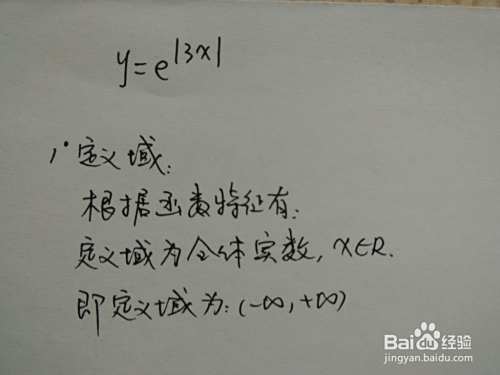 y=e^|3x|
1° 定义域:
根据函数特征有:
定义域为全体实数, x∈R.
即定义域为: (-∞, +∞)
Baidu经验
jingyan.baidu.com